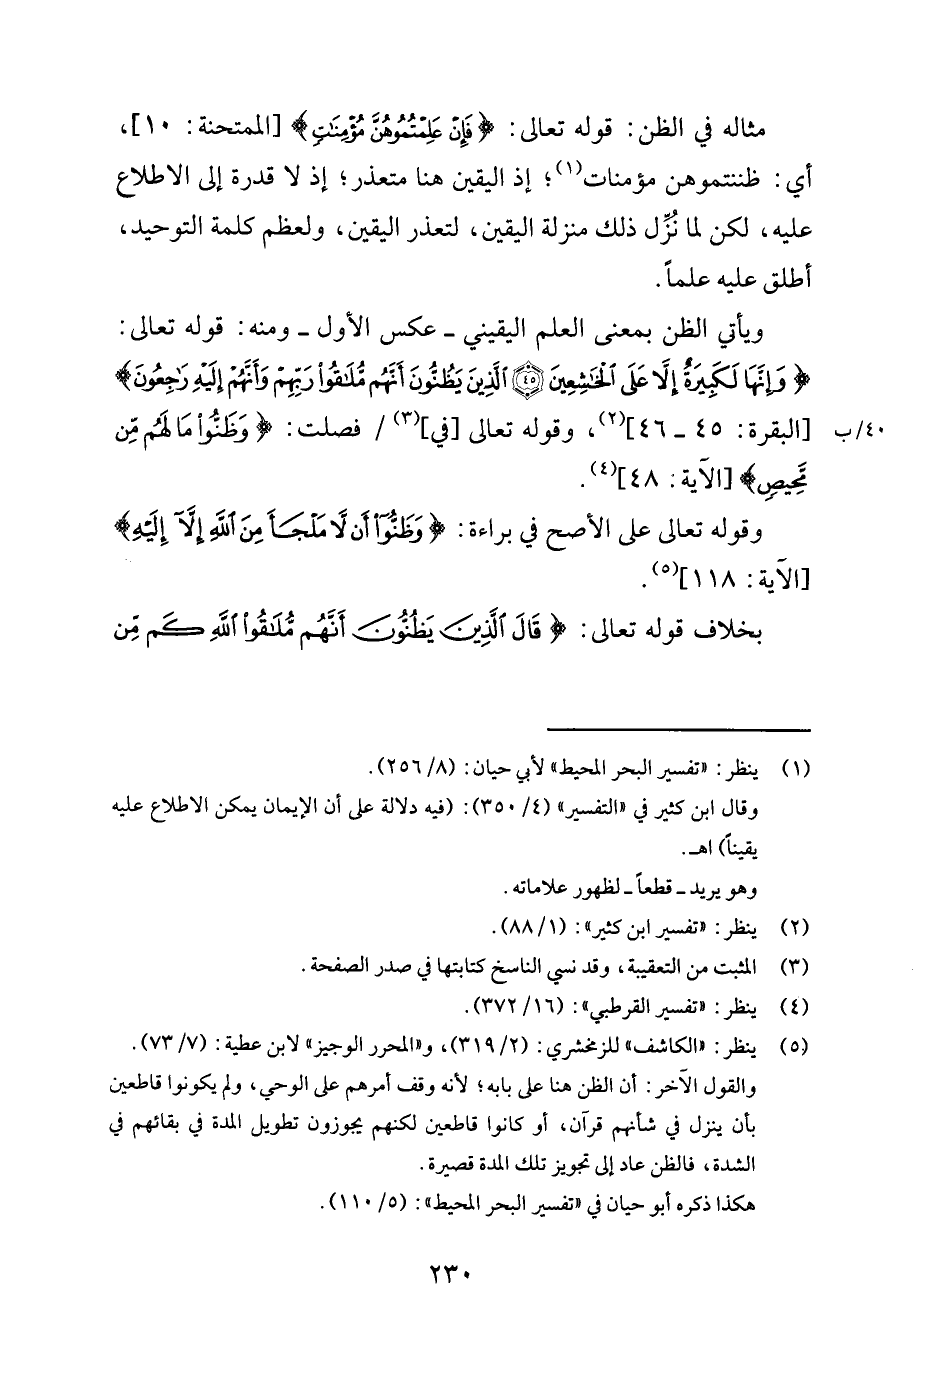 مثاله في الظن: قوله تعالى: ﴿فَإِنْ عَلِمْتُمُوهُنَّ مُؤْمِنَاتٍ﴾ [الممتحنة: ١٠]،
أي: ظننتموهن مؤمنات(١)؛ إذ اليقين هنا متعذر؛ إذ لا قدرة إلى الاطلاع
عليه، لكن لما نُزِّل ذلك منزلة اليقين، لتعذر اليقين، ولعظم كلمة التوحيد،
أطلق عليه علماً.
ويأتي الظن بمعنى العلم اليقيني ـ عكس الأول ـ ومنه: قوله تعالى:
﴿وَإِنَّهَا لَكَبِيرَةٌ إِلَّا عَلَى الْخَاشِعِينَ ٤٥ الَّذِينَ يَظُنُّونَ أَنَّهُم مُّلَاقُوا رَبِّهِمْ وَأَنَّهُمْ إِلَيْهِ رَاجِعُونَ﴾
[البقرة: ٤٥ ـ ٤٦](٢)، وقوله تعالى [في](٣) / فصلت: ﴿وَظَنُّوا مَا لَهُم مِّن
٤٠/ب
مَّحِيصٍ﴾ [الآية: ٤٨](٤).
وقوله تعالى على الأصح في براءة: ﴿وَظَنُّوا أَن لَّا مَلْجَأَ مِنَ اللَّهِ إِلَّا إِلَيْهِ﴾
[الآية: ١١٨](٥).
بخلاف قوله تعالى: ﴿قَالَ الَّذِينَ يَظُنُّونَ أَنَّهُم مُّلَاقُوا اللَّهِ كَم مِّن
(١) ينظر: «تفسير البحر المحيط» لأبي حيان: (٨/ ٢٥٦).
وقال ابن كثير في «التفسير» (٤/ ٣٥٠): (فيه دلالة على أن الإيمان يمكن الاطلاع عليه
يقيناً) اهـ.
وهو يريد ـ قطعاً ـ لظهور علاماته.
(٢) ينظر: «تفسير ابن كثير»: (١/ ٨٨).
(٣) المثبت من التعقيبة، وقد نسي الناسخ كتابتها في صدر الصفحة.
(٤) ينظر: «تفسير القرطبي»: (١٦/ ٣٧٢).
(٥) ينظر: «الكاشف» للزمخشري: (٢/ ٣١٩)، و«المحرر الوجيز» لابن عطية: (٧/ ٧٣).
والقول الآخر: أن الظن هنا على بابه؛ لأنه وقف أمرهم على الوحي، ولم يكونوا قاطعين
بأن ينزل في شأنهم قرآن، أو كانوا قاطعين لكنهم يجوزون تطويل المدة في بقائهم في
الشدة، فالظن عاد إلى تجويز تلك المدة قصيرة.
هكذا ذكره أبو حيان في «تفسير البحر المحيط»: (٥/ ١١٠).
٢٣٠